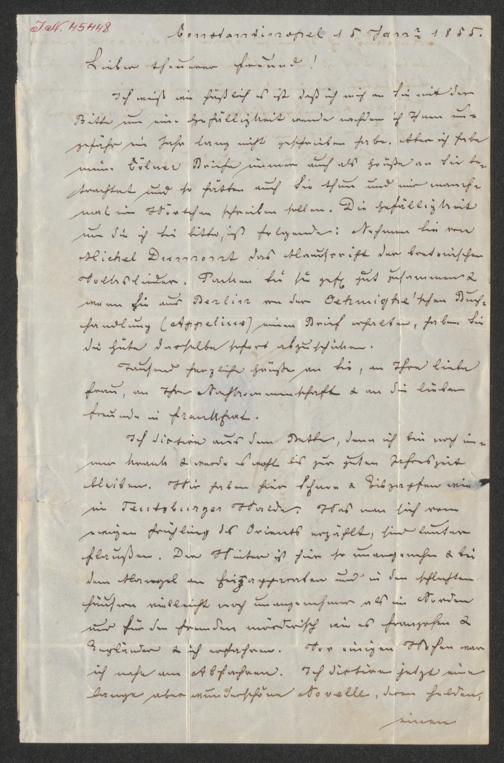 J.N. 45448
Constantinopel 15 Jan. 1855.
Lieber theurer Freund!
Ich weiß wie häßlich es ist daß ich mich an Sie mit der
Bitte um eine Gefälligkeit wende nachdem ich Ihnen un-
gefähr ein Jahr lang nicht geschrieben habe. Aber ich habe
meine Cölner Briefe immer auch als Grüße an Sie be-
trachtet und so hätten auch Sie thun und mir manch-
mal ein Wörtchen schreiben sollen. Die Gefälligkeit
um die ich Sie bitte, ist folgende: Nehmen Sie von
Michel Dumont das Manuscript der bretonischen
Volkslieder. Packen Sie sie gefl. gut zusammen &
wenn Sie aus Berlin von der Oehmigke'schen Buch-
handlung (Appelius) einen Brief erhalten, haben Sie
die Güte dasselbe sofort abzuschicken.
Tausend herzliche Grüße an Sie, an Ihre liebe
Frau, an Ihre Nachkommenschaft & an die lieben
Freunde in Frankfurt.
Ich dictire aus dem Bette, denn ich bin noch im-
mer krank & werde es wohl bis zur guten Jahreszeit
bleiben. Wir haben hier Schnee & Eiszapfen wie
im Teutoburger Walde. Was man sich vom
ewigen Frühling des Orients erzählt, sind lauter
Flausen. Der Winter ist hier so unangenehm & bei
dem Mangel an Heizapparaten und in den schlechten
Häusern vielleicht noch unangenehmer als im Norden
und für den Fremden mörderisch wie es Franzosen &
Engländer & ich erfahren. Vor einigen Wochen war
ich nahe am Abfahren. Ich dictire jetzt eine
lange aber wunderschöne Novelle, deren Helden,
einen